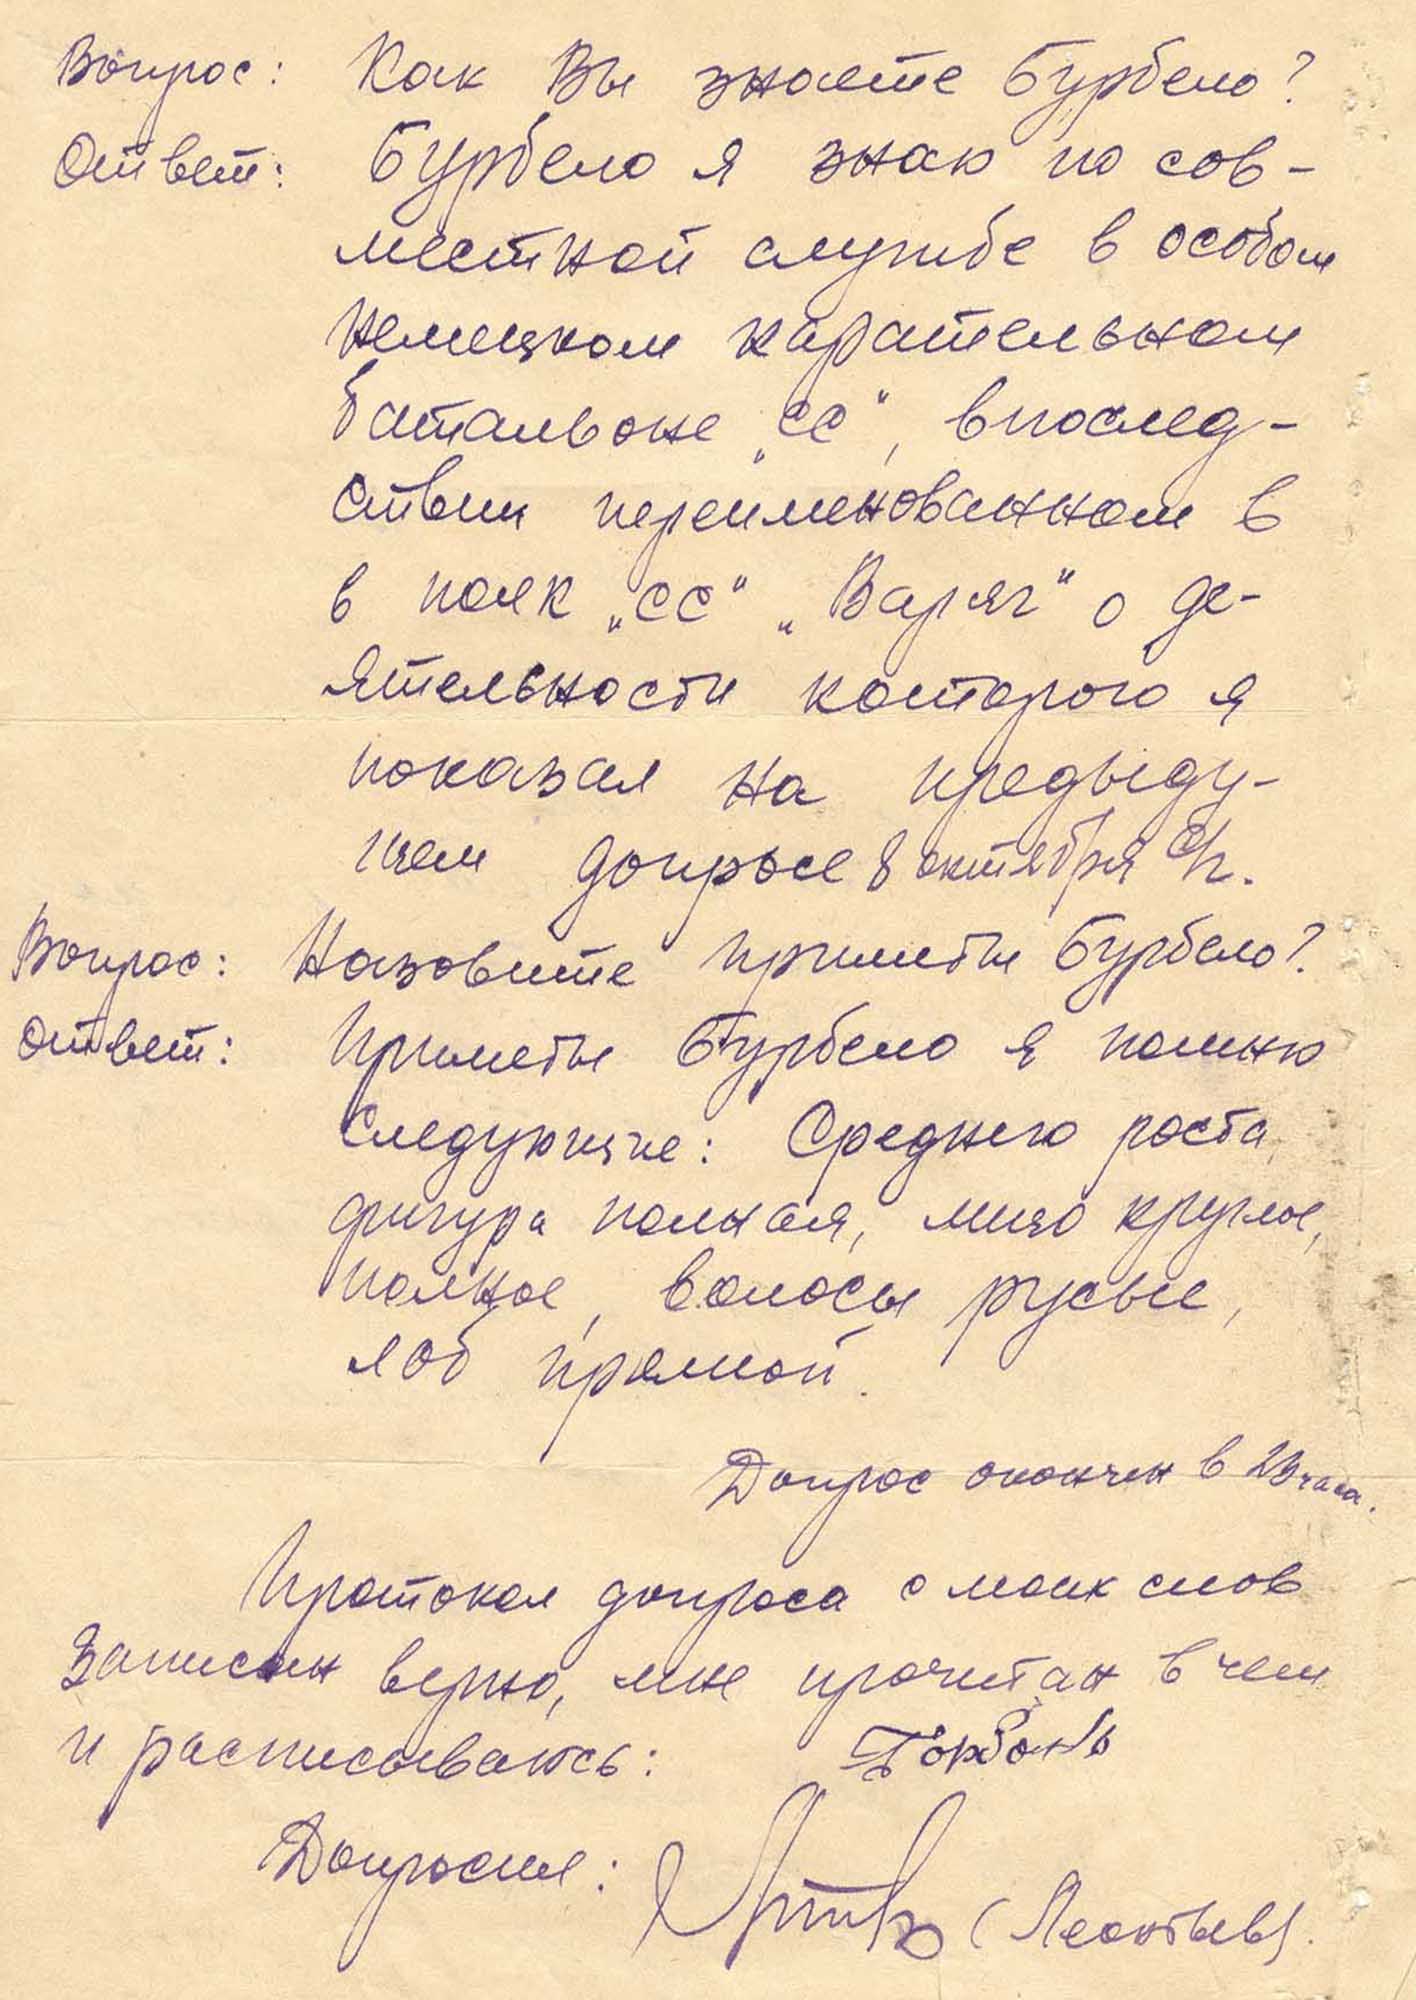 Вопрос: Как Вы знаете Бурбело?
Ответ: Бурбело я знаю по сов-
местной службе в особом
немецком карательном
батальоне „СС“, впослед-
ствии переименованном в
в полк „СС“ „Варяг“ о де-
ятельности которого я
показал на предыду-
щем допросе 8 октября с/г.
Вопрос: Назовите приметы Бурбело?
Ответ: Приметы Бурбело я помню
следующие: Среднего роста,
фигура полная, лицо круглое,
полное, волосы русые,
лоб прямой.
Допрос окончен в 23 часа.
Протокол допроса с моих слов
записан верно, мне прочитан в чем
и расписываюсь:
Допросил: (Леонтьев).